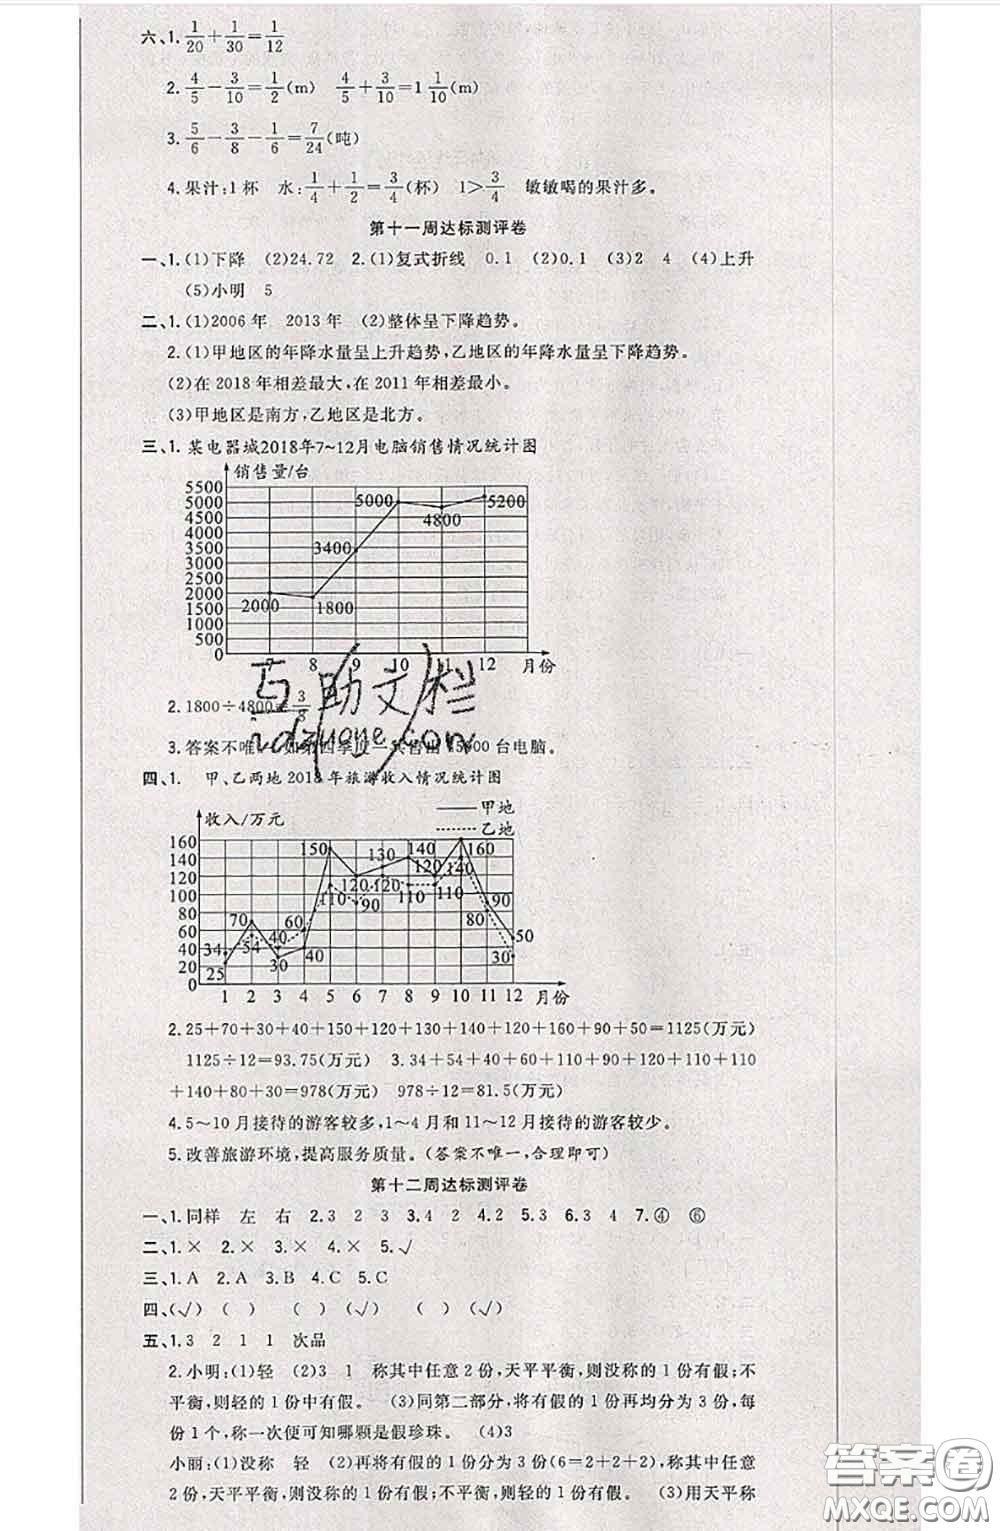 六、1. 1/20+1/30=1/12
2. 4/5-3/10=1/2(m) 4/5+3/10=1 1/10(m)
3. 5/6-3/8-1/6=7/24(吨)
4. 果汁:1杯 水:1/4+1/2=3/4(杯) 1>3/4 敏敏喝的果汁多。
第十一周达标测评卷
一、1.(1)下降 (2)24.72 2.(1)复式折线 0.1 (2)0.1 (3)2 4 (4)上升
(5)小明 5
二、1.(1)2006年 2013年 (2)整体呈下降趋势。
2.(1)甲地区的年降水量呈上升趋势,乙地区的年降水量呈下降趋势。
(2)在2018年相差最大,在2011年相差最小。
(3)甲地区是南方,乙地区是北方。
三、1.某电器城2018年7~12月电脑销售情况统计图
销售量/台
5500
5000
4500
4000
3500
3000
2500
2000
1500
1000
500
0
2000
1800
3400
5000
4800
5200
7 8 9 10 11 12 月份
互助文档
2.1800÷4800=3/8
3.答案不唯一,如第四季度一共售出15000台电脑。
四、1. 甲、乙两地2018年旅游收入情况统计图
甲地
乙地
收入/万元
160
140
120
100
80
60
40
20
0
34 25 70 54 40 30 60 40 150 110 120 90 130 120 140 110 120 110 160 140 90 80 50 30
1 2 3 4 5 6 7 8 9 10 11 12 月份
2.25+70+30+40+150+120+130+140+120+160+90+50=1125(万元)
1125÷12=93.75(万元) 3.34+54+40+60+110+90+120+110+110
+140+80+30=978(万元) 978÷12=81.5(万元)
4.5~10月接待的游客较多,1~4月和11~12月接待的游客较少。
5.改善旅游环境,提高服务质量。(答案不唯一,合理即可)
第十二周达标测评卷
一、1.同样 左 右 2.3 2 3 3.4 2 4.2 5.3 6.3 4 7.④ ⑥
二、1.× 2.× 3.× 4.× 5.√
三、1.A 2.A 3.B 4.C 5.C
四、(√) ( ) ( ) (√) ( ) (√)
五、1.3 2 1 1 次品
2.小明:(1)轻 (2)3 1 称其中任意2份,天平平衡,则没称的1份有假;不
平衡,则轻的1份中有假。 (3)同第二部分,将有假的1份再均分为3份,每
份1个,称一次便可知哪颗是假珍珠。 (4)3
小丽:(1)没称 轻 (2)再将有假的1份分为3份(6=2+2+2),称其中任意
2份,天平平衡,则没称的1份有假;不平衡,则轻的1份有假。 (3)用天平称
答案圈
MXQE.COM